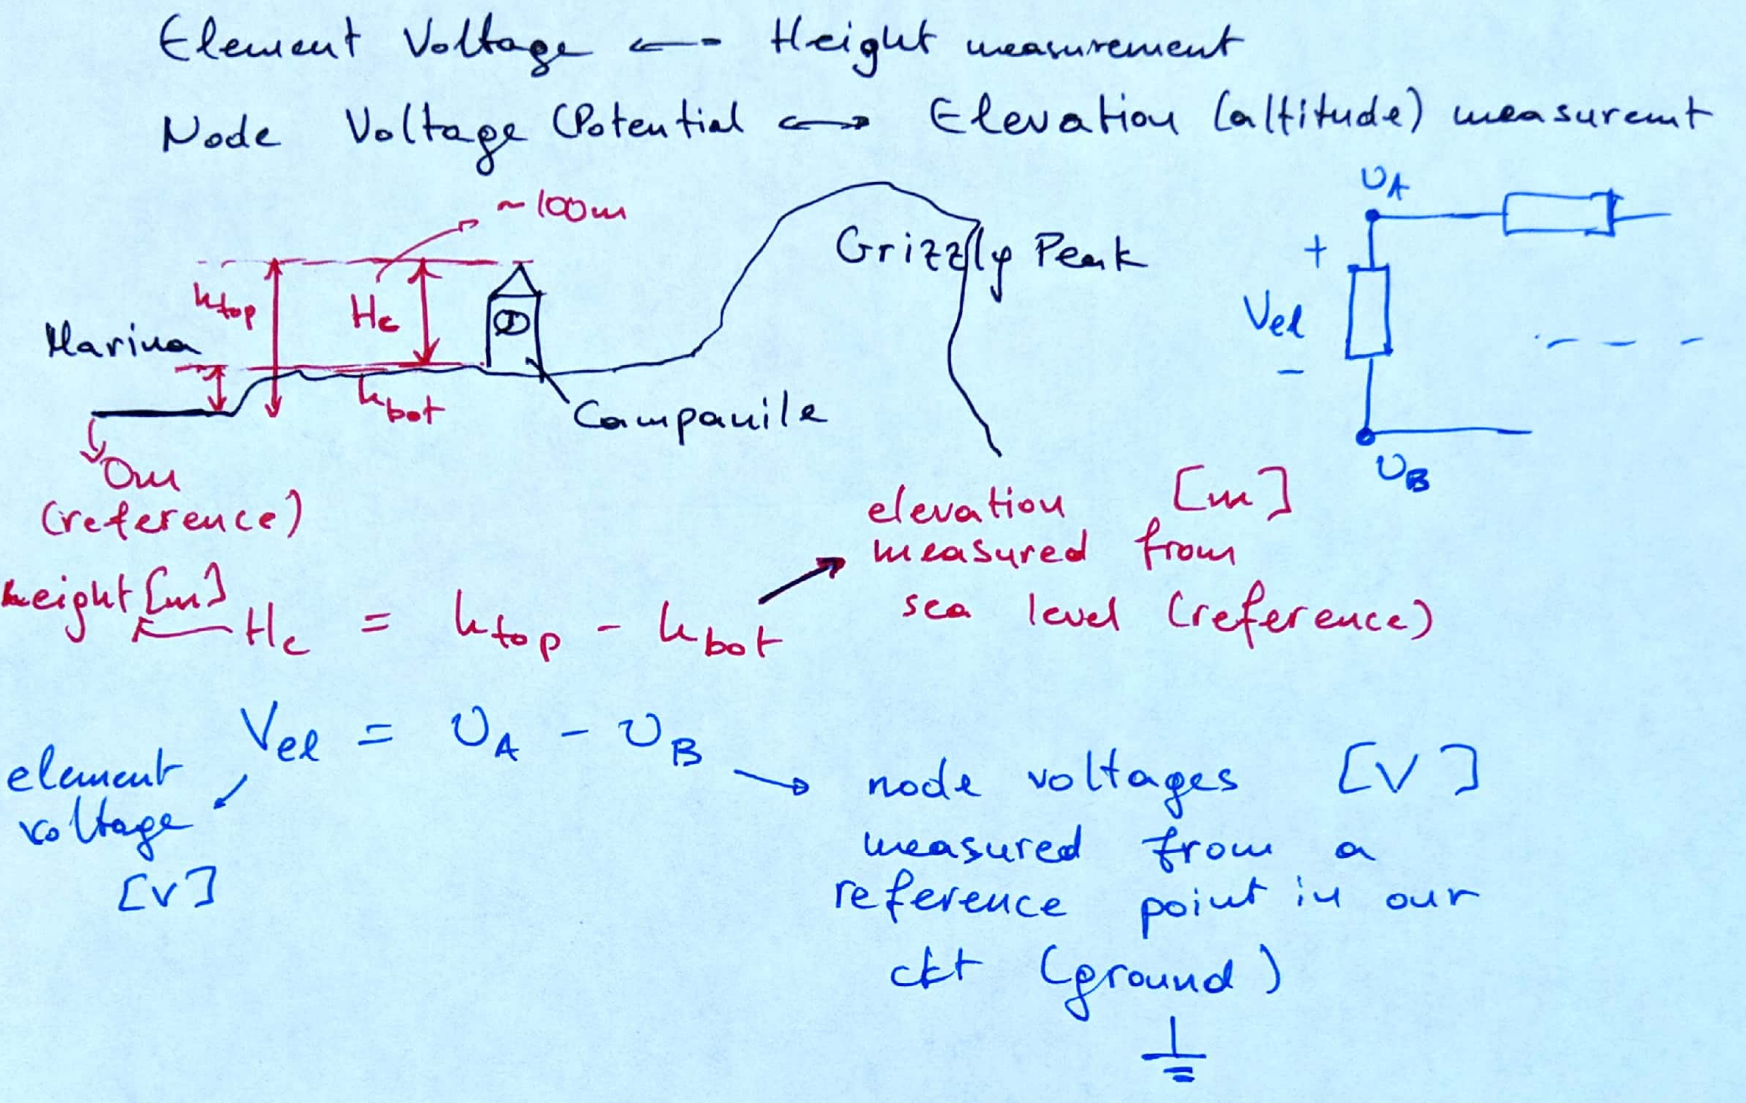 Element Voltage ⟵ Height measurement
Node Voltage (Potential ⟷ Elevation (altitude) measuremt
~100m
Grizzly Peak
h_top
H_c
Marina
h_bot
Campanile
0m
(reference)
U_A
+
V_el
-
U_B
elevation [m]
measured from
sea level (reference)
height [m]
H_c = h_top - h_bot
V_el = U_A - U_B
element
voltage
[V]
node voltages [V]
measured from a
reference point in our
ckt (ground)